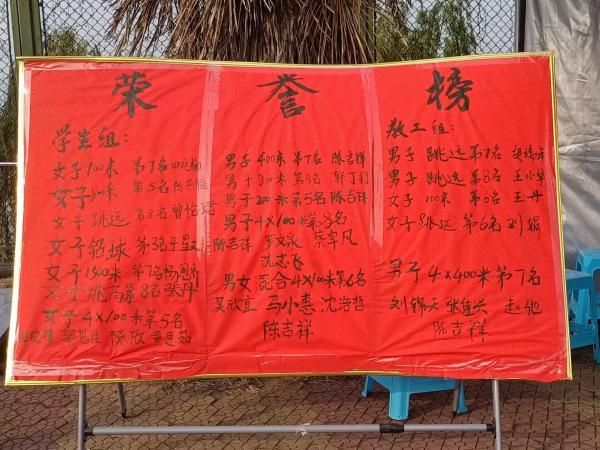 荣誉榜
学生组：
女子100米 第7名
女子 第5名
女子 跳远 第8名 曾怡珺
女子 铅球 第3名
女子1500米 第7名
女子 跳高 第8名 张丹
女子 4X100米 第5名
陈欣
男子 400米 第7名 陈吉祥
男子 800米 第8名
男子 200米 第5名 陈吉祥
男子 4X100米 第8名
陈吉祥 罗文泉 蔡宇凡
沈志飞
男女混合 4X100米 第6名
吴欣宜 马小惠 沈浩哲
陈吉祥
教工组：
男子 跳远 第7名
男子 跳远 第8名 王小华
女子 100米 第6名 王丹
女子 跳远 第6名 刘娟
男子 4X400米 第7名
刘锦天 张佳兴 赵驰
陈吉祥